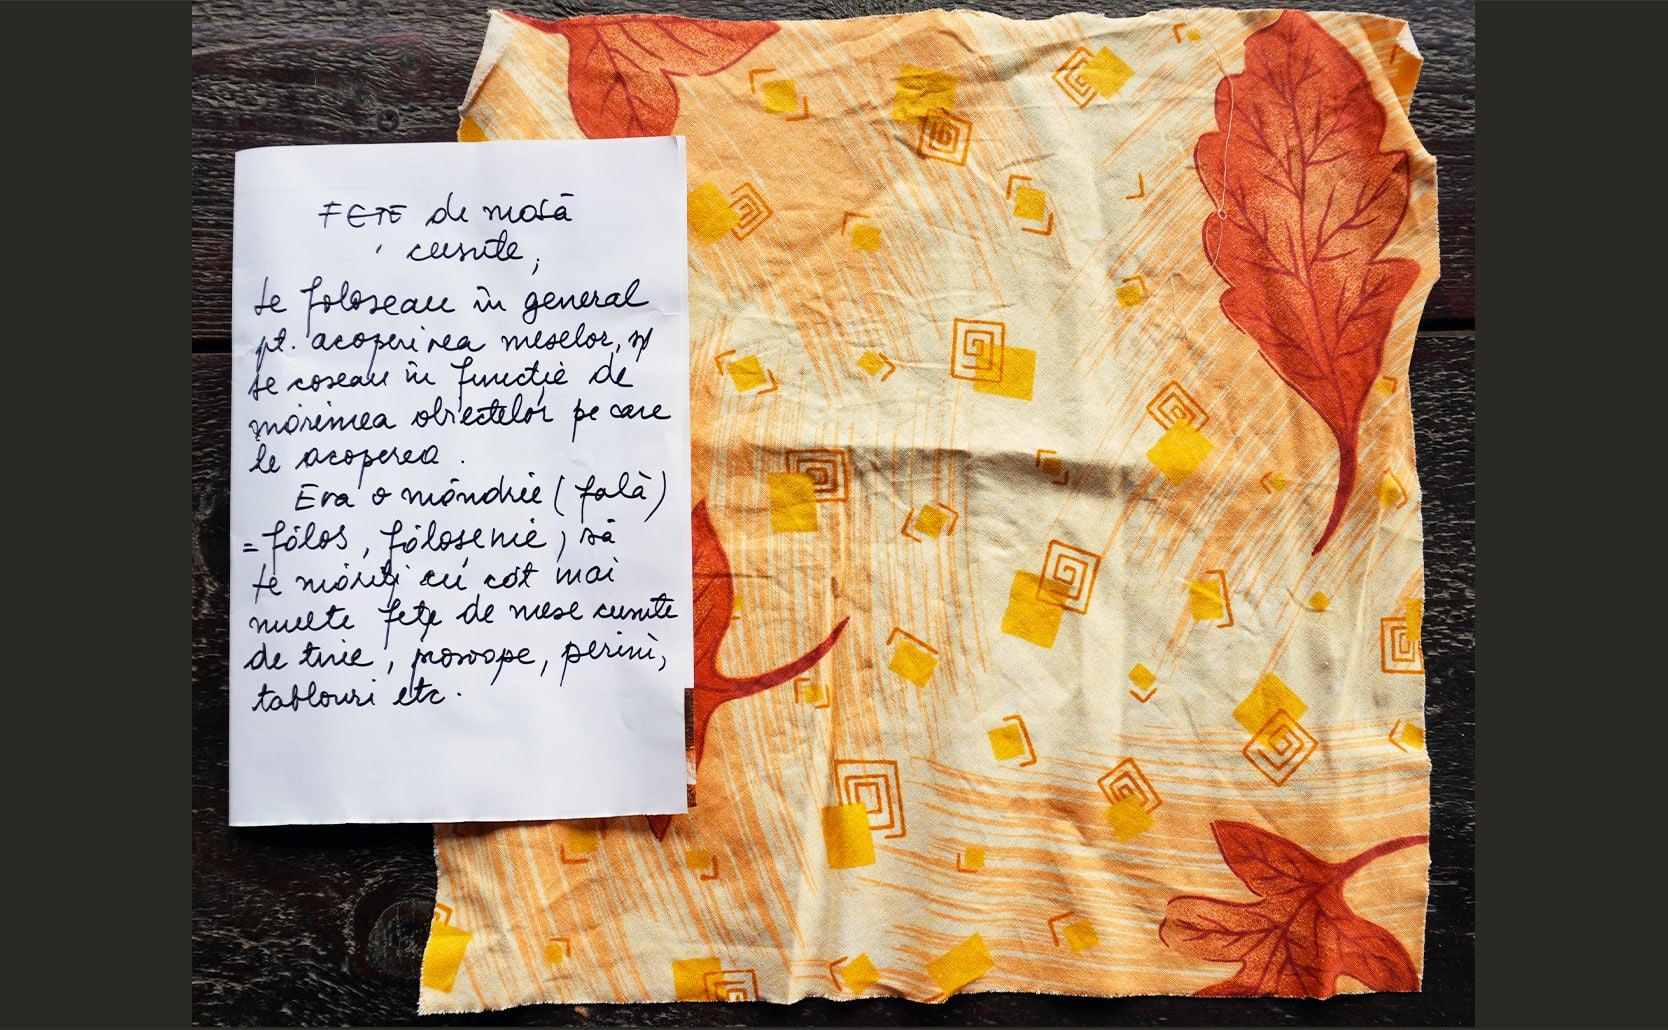 FEȚE de masă
cusute,
se foloseau în general
pt. acoperirea meselor, și
se coseau în funcție de
mărimea obiectelor pe care
le acoperea.
Era o mândrie (fală)
= fălos, fălosenie, să
te măriți cu cât mai
multe fețe de mese cusute
de tine, prosoape, perini,
tablouri etc.